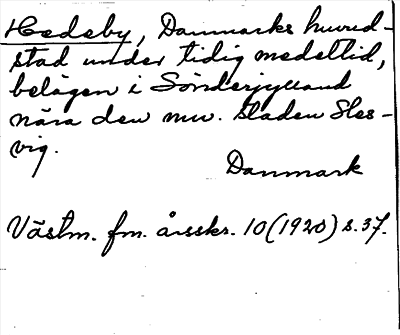 Hedeby, Danmarks huvud-
stad under tidig medeltid,
belägen i Sönderjylland
nära den nuv. staden Sles-
vig.
Danmark
Västm. fm. årsskr. 10 (1920) s. 37.